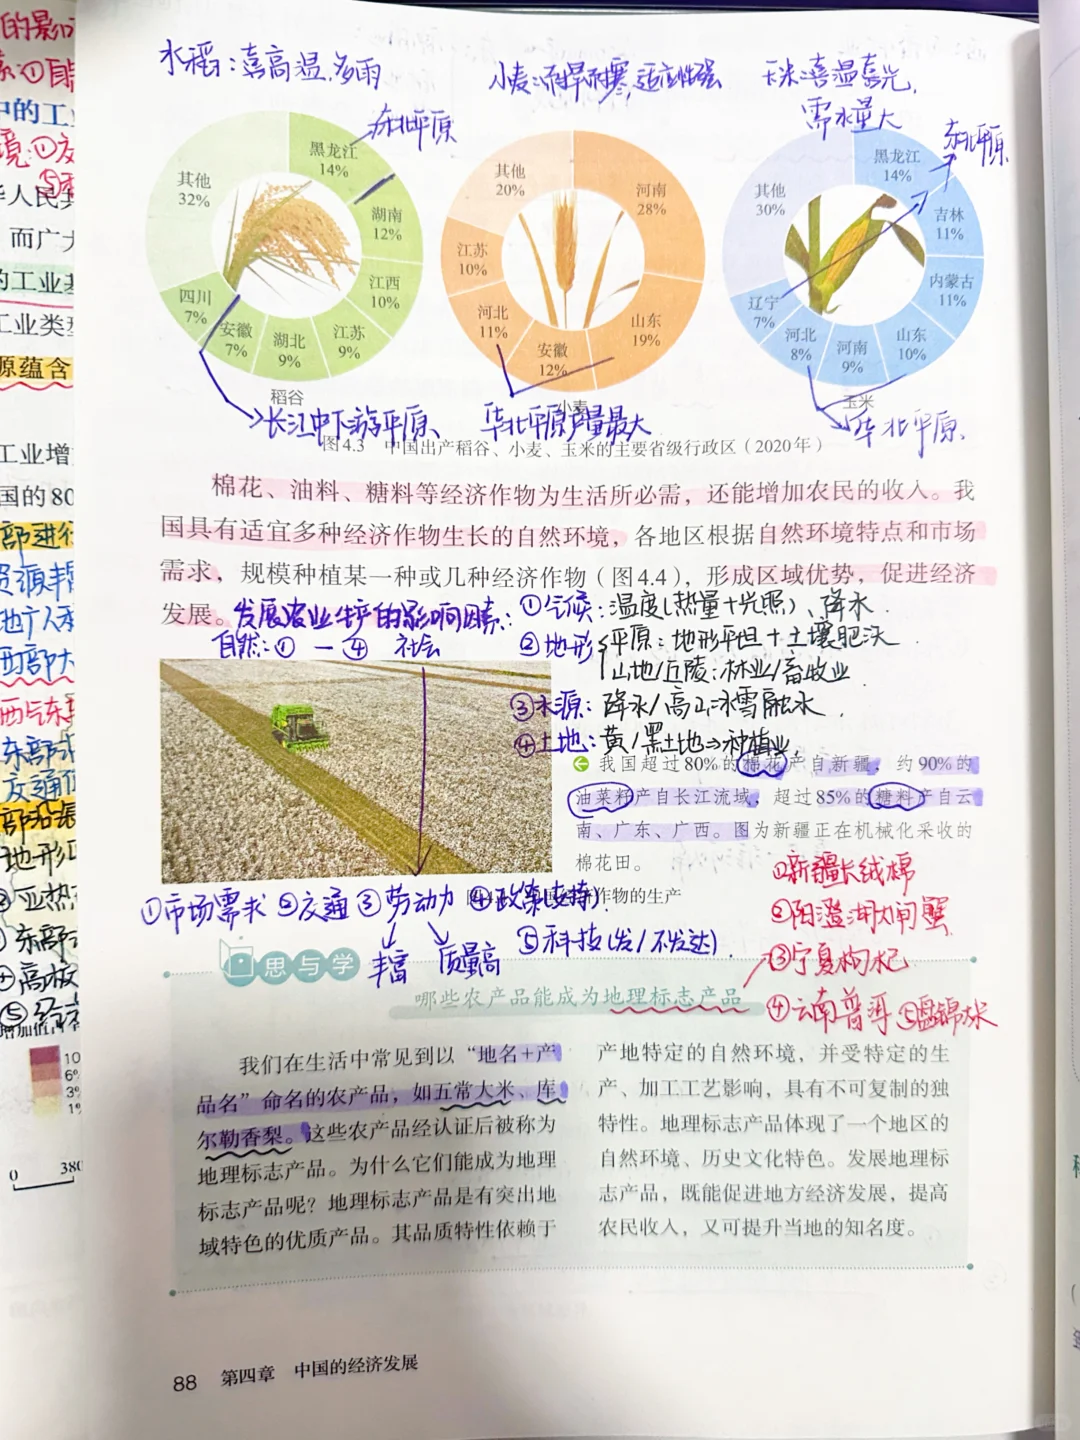 水稻：喜高温，多雨
小麦：耐旱耐寒，适应性强
玉米：喜温喜光，
需水量大
东北平原
东北平原
黑龙江
14%
湖南
12%
江西
10%
江苏
9%
湖北
9%
安徽
7%
四川
7%
其他
32%
稻谷
河南
28%
山东
19%
安徽
12%
河北
11%
江苏
10%
其他
20%
小麦
黑龙江
14%
吉林
11%
内蒙古
11%
山东
10%
河南
9%
河北
8%
辽宁
7%
其他
30%
玉米
长江中下游平原、
华北平原产量最大
华北平原.
图4.3 中国出产稻谷、小麦、玉米的主要省级行政区（2020年）
棉花、油料、糖料等经济作物为生活所必需，还能增加农民的收入。我
国具有适宜多种经济作物生长的自然环境，各地区根据自然环境特点和市场
需求，规模种植某一种或几种经济作物（图4.4），形成区域优势，促进经济
发展。
发展农业生产的影响因素：①气候：温度（热量+光照）、降水
自然：①—④ 社会
②地形 平原：地形平坦+土壤肥沃
山地/丘陵：林业/畜牧业
③水源：降水/高山冰雪融水
④土地：黄/黑土地⇒种植业
我国超过80%的棉花产自新疆，约90%的
油菜籽产自长江流域，超过85%的糖料产自云
南、广东、广西。图为新疆正在机械化采收的
棉花田。
作物的生产
①市场需求 ②交通 ③劳动力 ④政策(支持)
丰富 质量高 ⑤科技(发/不发达)
①新疆长绒棉
②阳澄湖大闸蟹
③宁夏枸杞
④云南普洱 ⑤盘锦大米
思与学
哪些农产品能成为地理标志产品
我们在生活中常见到以“地名+产
品名”命名的农产品，如五常大米、库
尔勒香梨。这些农产品经认证后被称为
地理标志产品。为什么它们能成为地理
标志产品呢？地理标志产品是有突出地
域特色的优质产品。其品质特性依赖于
产地特定的自然环境，并受特定的生
产、加工工艺影响，具有不可复制的独
特性。地理标志产品体现了一个地区的
自然环境、历史文化特色。发展地理标
志产品，既能促进地方经济发展，提高
农民收入，又可提升当地的知名度。
88 第四章 中国的经济发展